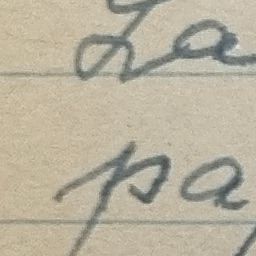 La
pa